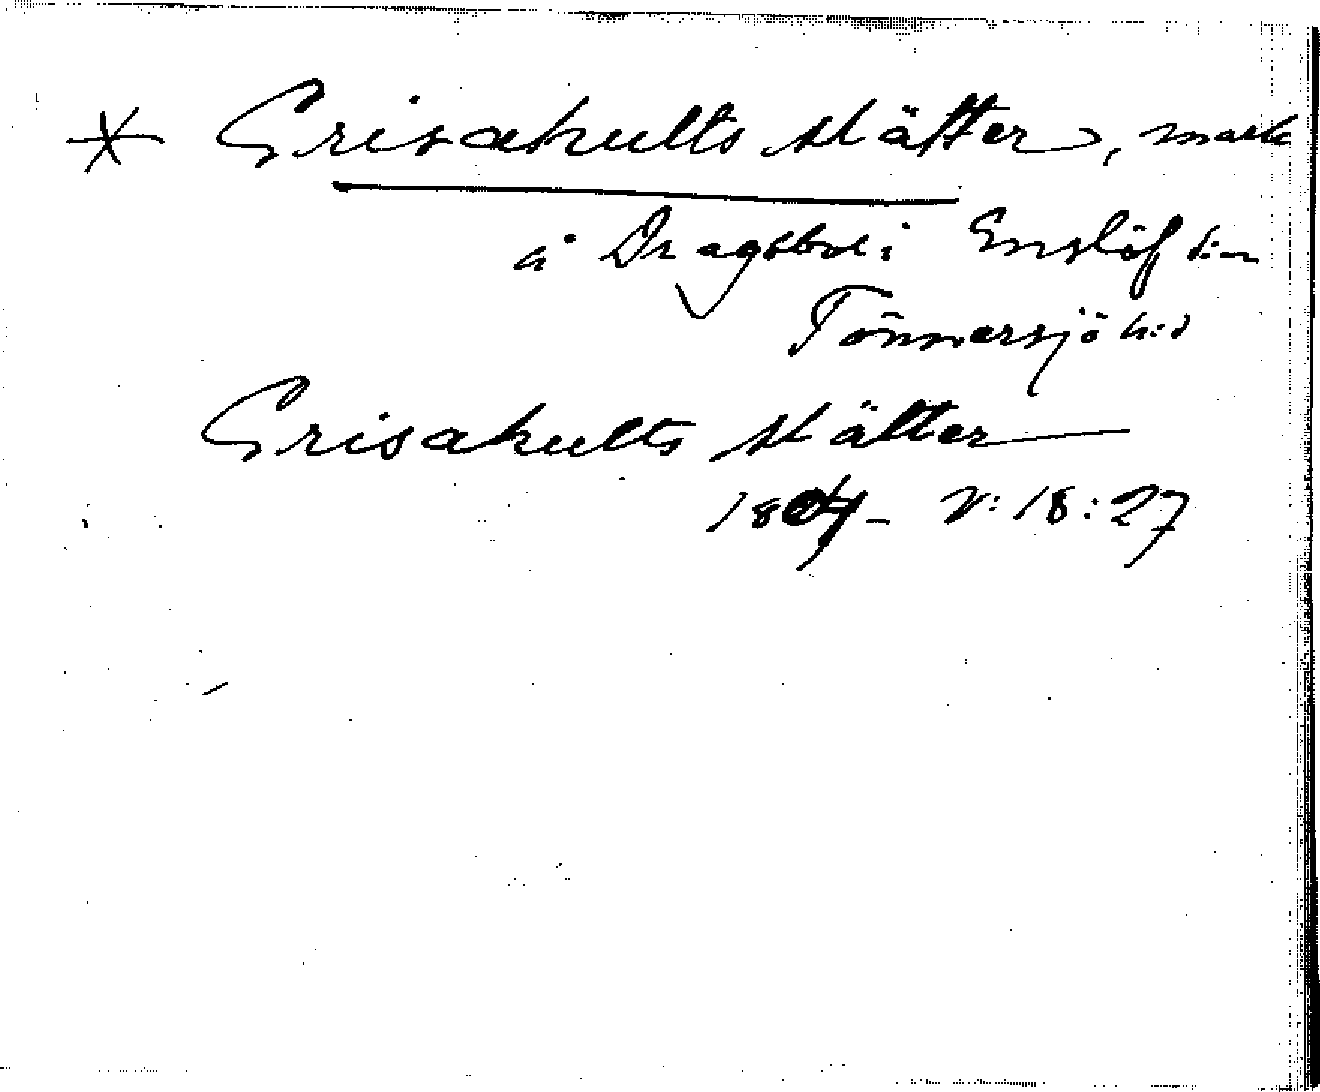 * Grisakults slätter, mark
å Dragsbol i Enslöf sn
Tönnersjö hd
Grisakults slätter
1804- V: 18: 27